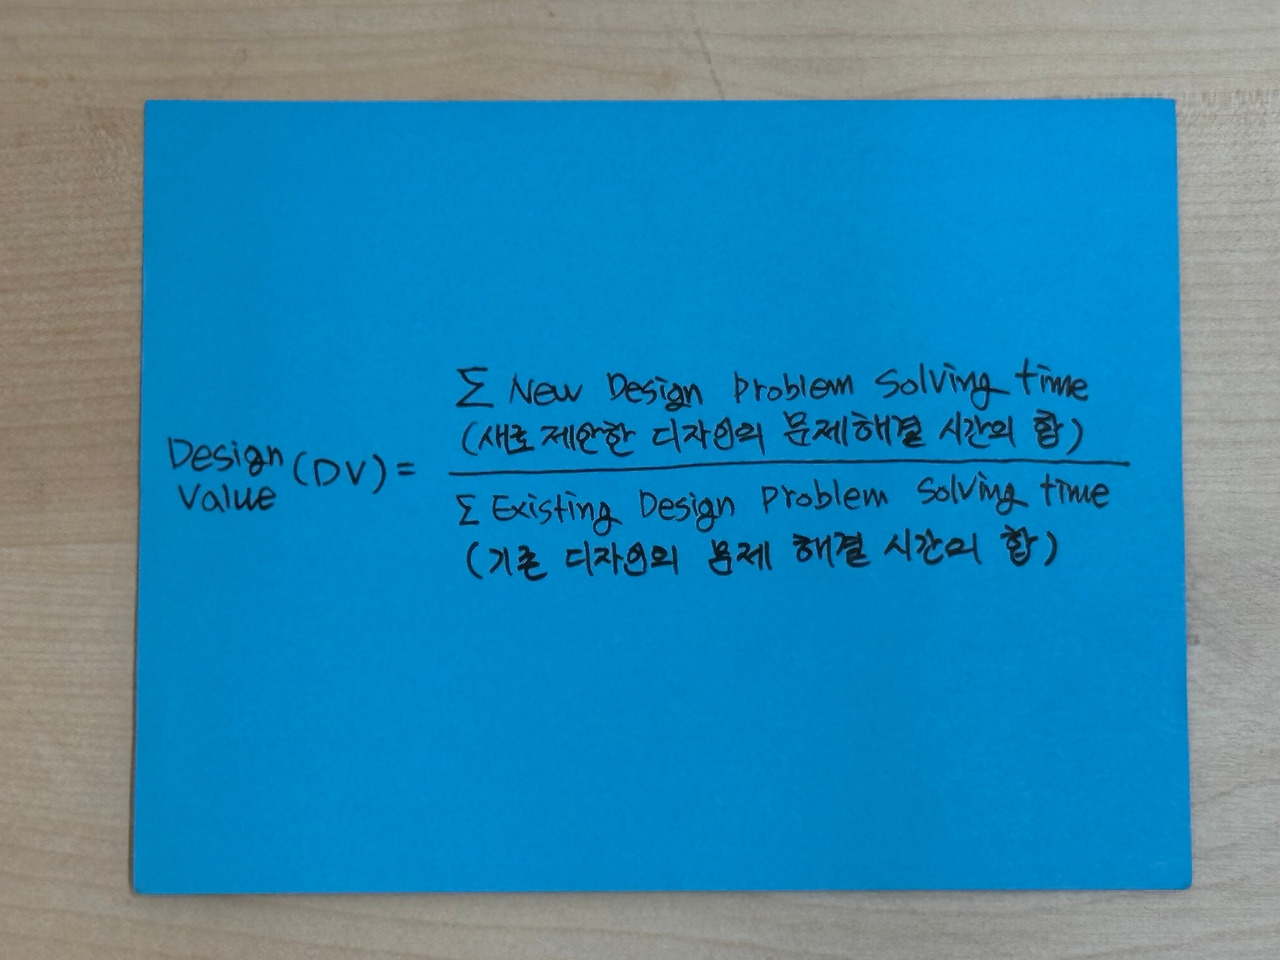 Σ New Design Problem Solving time
(새로 제안한 디자인의 문제해결 시간의 합)
Design Value (DV) =
Σ Existing Design Problem Solving time
(기존 디자인의 문제 해결 시간의 합)